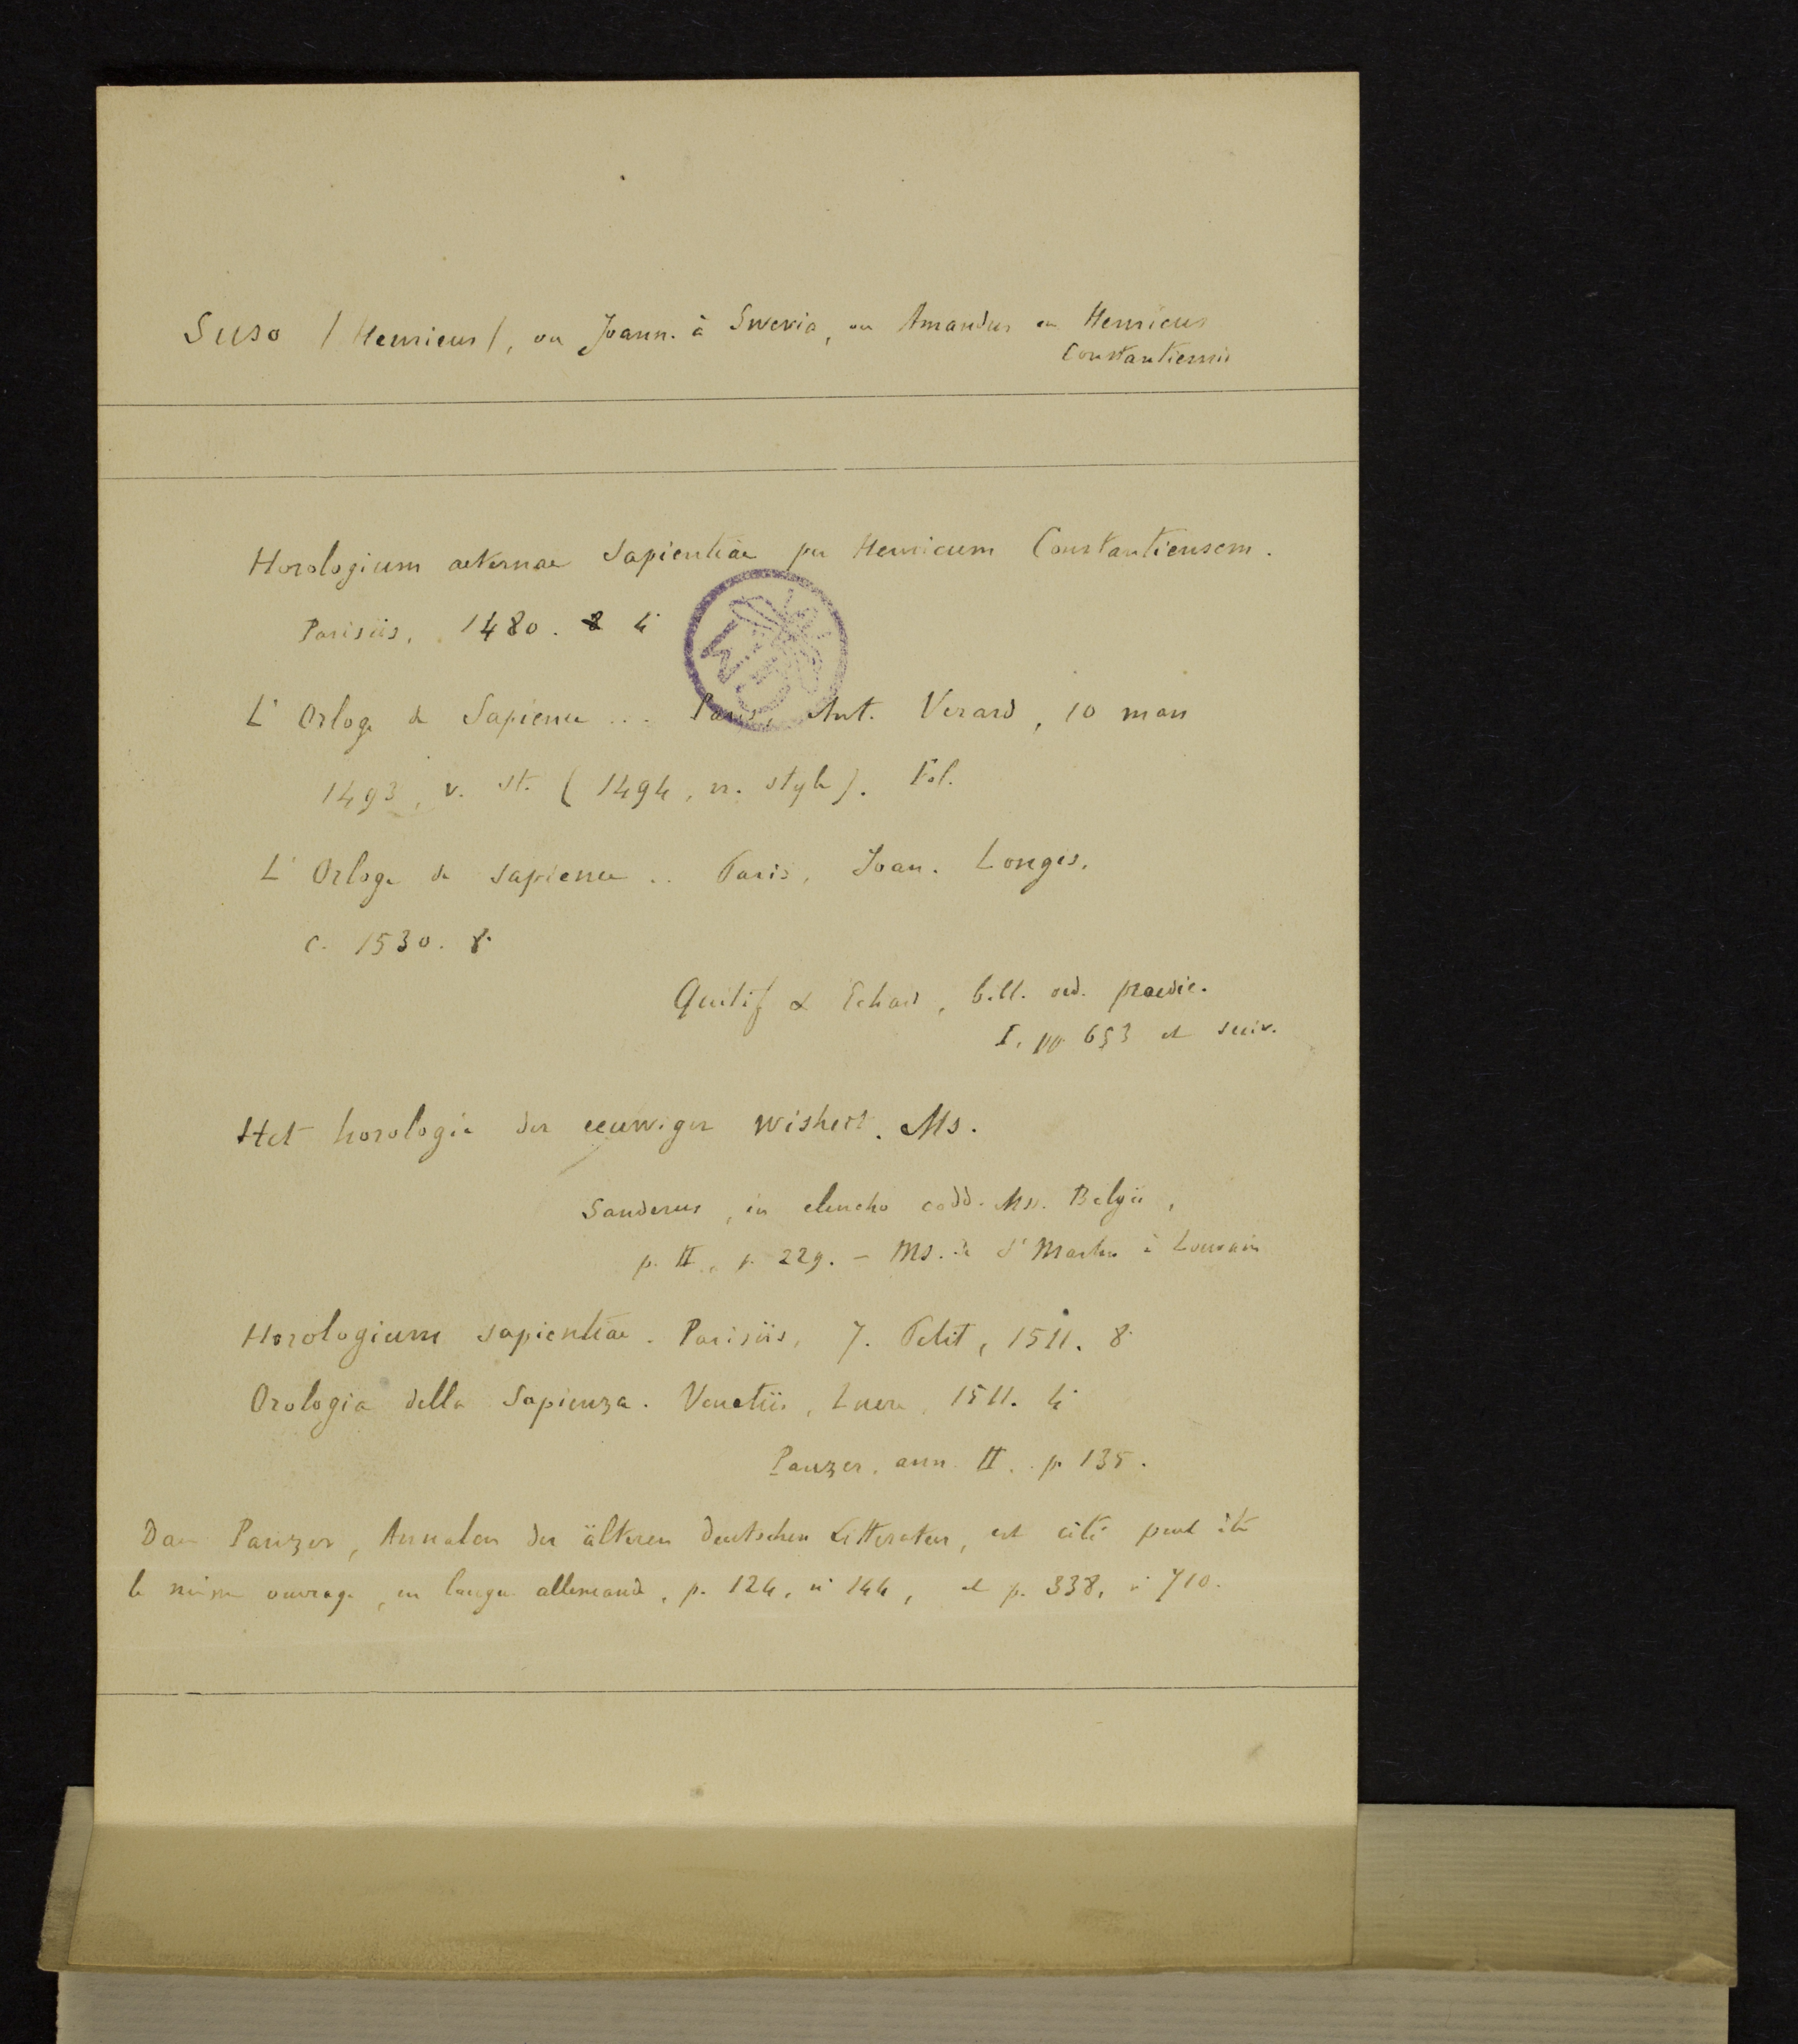 Suso (Henricus), ou Joann. à Suevia, ou Amandus ou Henricus
Constantiensis
Horologium aeternae Sapientiae per Henricum Constantiensem.
Parisiis, 1480. 4°
L'Orloge de Sapience ... Paris, Ant. Verard, 10 mars
1493, v. st. (1494, n. style). Fol.
L'Orloge de sapience .. Paris, Joan. Longis,
c. 1530. 8°
Quétif & Echard, bibl. ord. praedic.
I, pp 653 et suiv.
Het horologie der eeuwiger wisheit. Ms.
Sanderus, in elencho codd. Mss. Belgii,
p. II, p. 229. - Ms. de St Martin à Louvain
Horologium sapientiae. Parisiis, J. Petit, 1511. 8°
Orologia della Sapienza. Venetiis, 1511. 4°
Panzer, ann. II. p. 135.
Dans Panzer, Annalen der älteren deutschen Litteratur, est cité peut être
le même ouvrage, en langue allemande, p. 124, n° 144, et p. 338, n° 710.